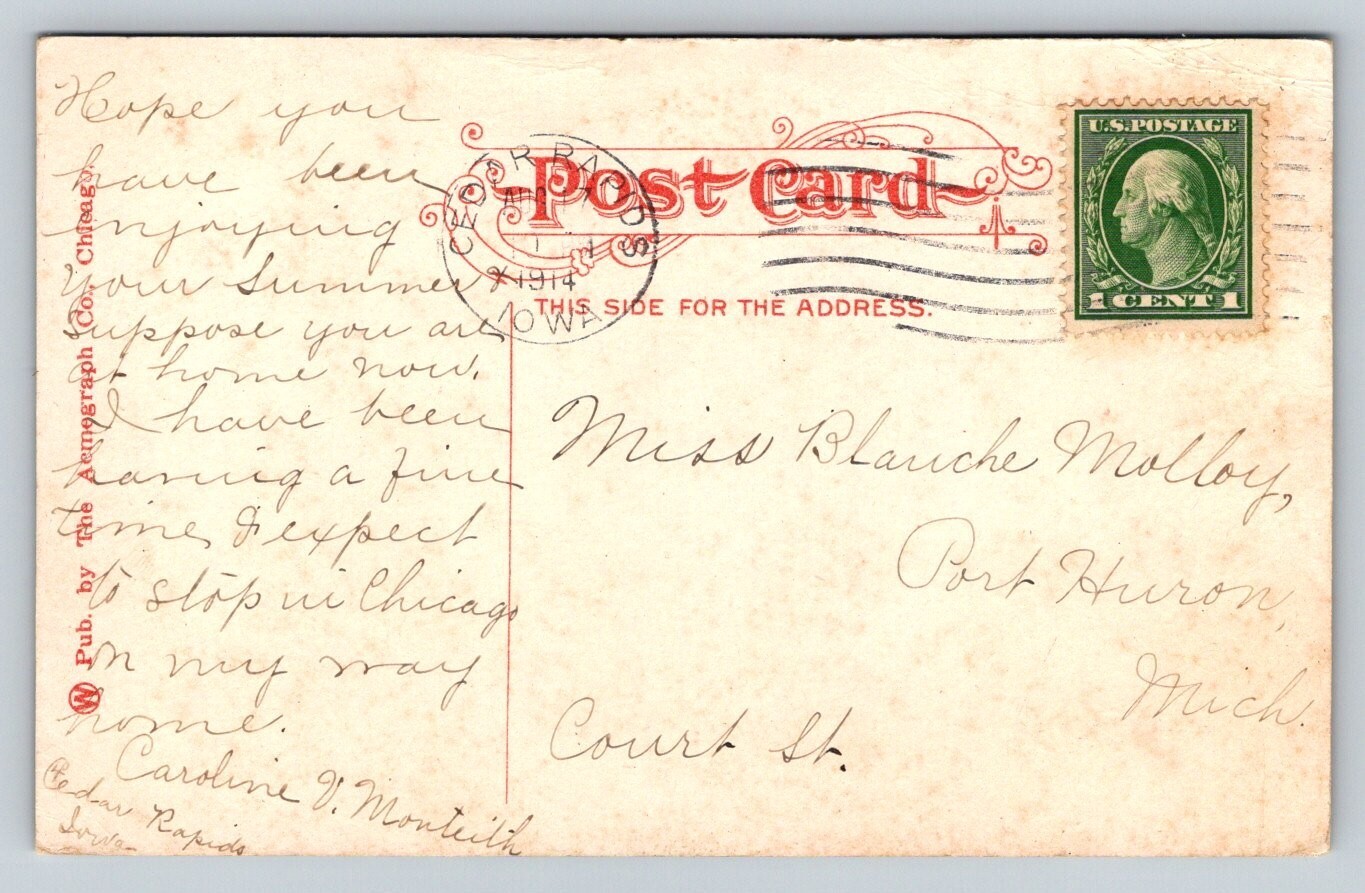 Hope you
have been
enjoying
your Summer
suppose you are
at home now.
I have been
having a fine
time, & expect
to stop in Chicago
on my way
home.
Caroline V. Monteith
Cedar Rapids
Iowa
Pub. by The Acmegraph Co., Chicago
W
Post Card
THIS SIDE FOR THE ADDRESS.
CEDAR RAPIDS
AUG 17
1914
IOWA
U.S. POSTAGE
1 CENT 1
Miss Blanche Molloy,
Port Huron,
Mich.
Court St.